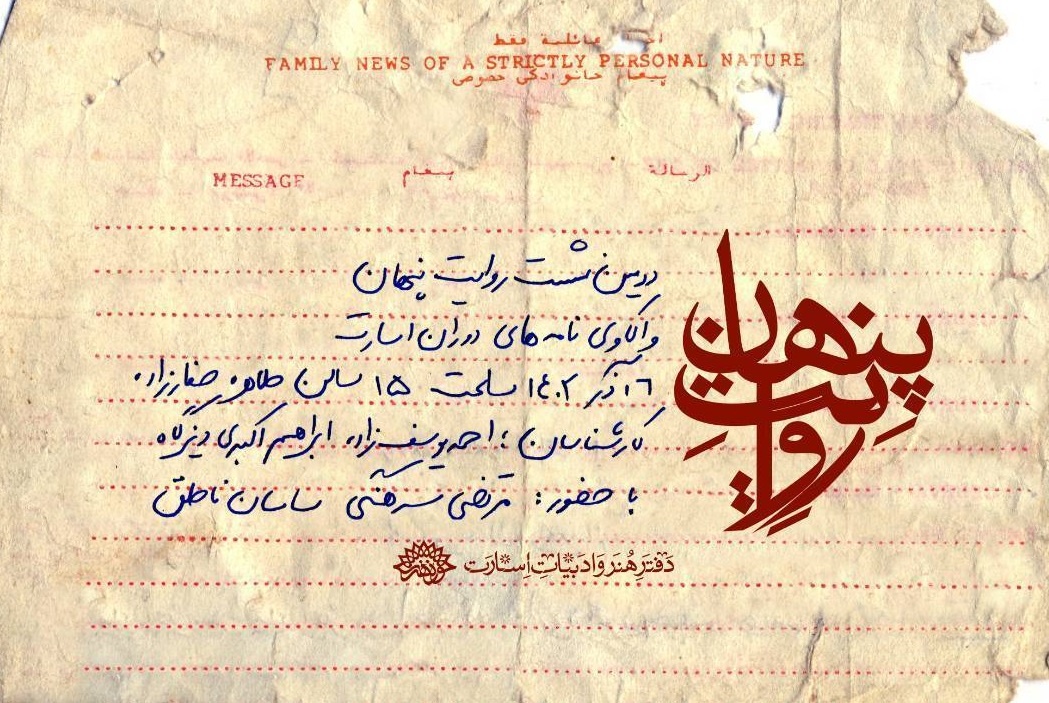 عائلية فقط
FAMILY NEWS OF A STRICTLY PERSONAL NATURE
پیغام خانوادگی خصوصی
MESSAGE پیغام الرسالة
دومین نشست روایت پنهان
واکاوی نامه های دوران اسارت
۱۶ آذر ۱۴۰۲ ساعت ۱۵ سالن طاهره صفارزاده
کارشناسان : احمد یوسف زاده ابراهیم اکبری دیزگاه
با حضور : مرتضی سرهنگی ساسان ناطق
روایت پنهان
دفتر هنر و ادبیات اسارت